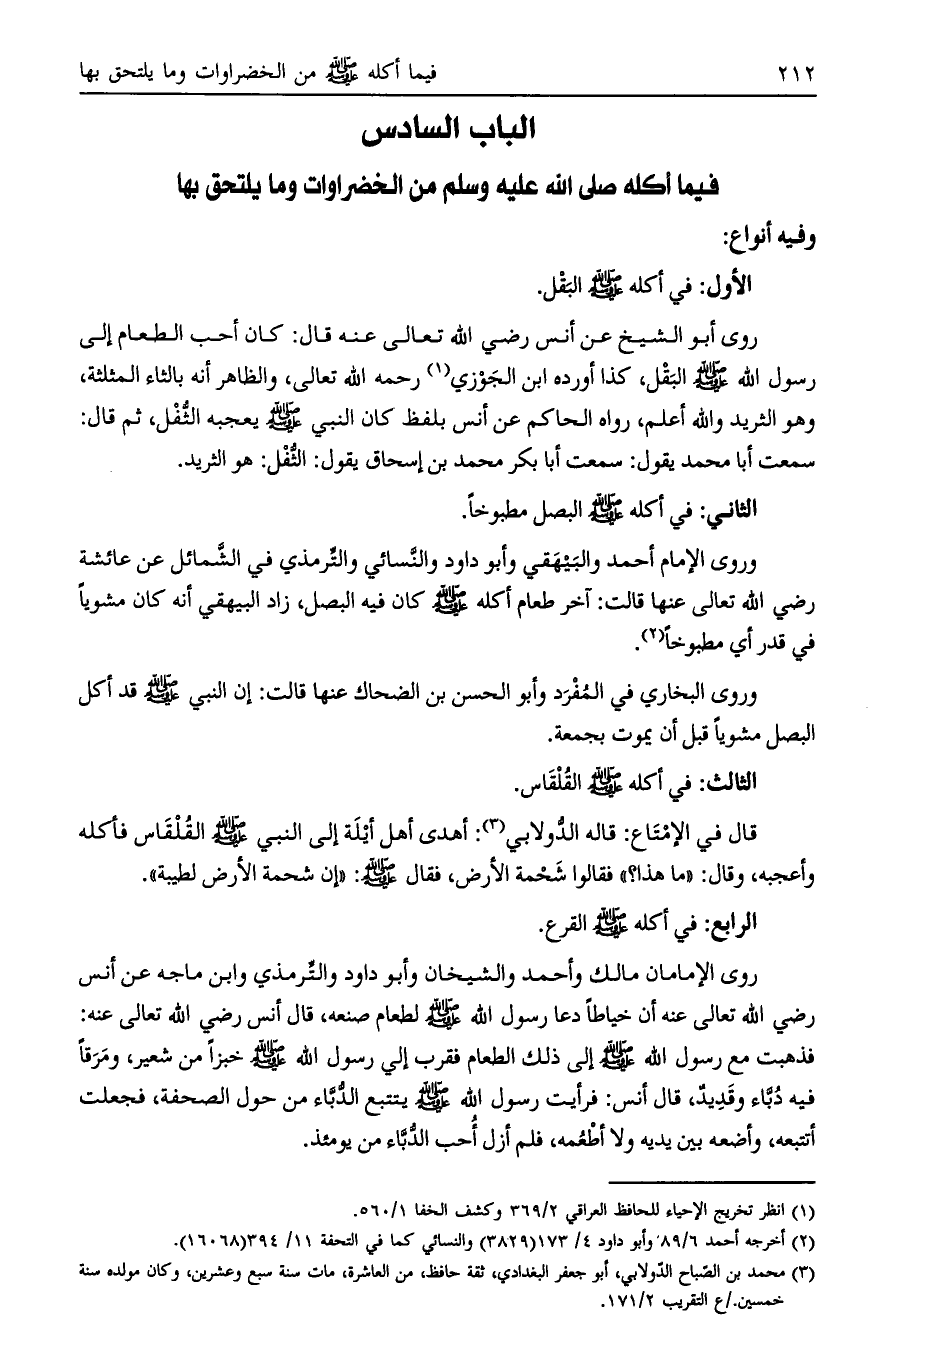 ٢١٢ فيما أكله ﷺ من الخضراوات وما يلتحق بها
الباب السادس
فيما أكله صلى الله عليه وسلم من الخضراوات وما يلتحق بها
وفيه أنواع:
الأول: في أكله ﷺ البَقْل.
روى أبو الشيخ عن أنس رضي الله تعالى عنه قال: كان أحب الطعام إلى
رسول الله ﷺ البَقْل، كذا أورده ابن الجَوْزي(١) رحمه الله تعالى، والظاهر أنه بالثاء المثلثة،
وهو الثريد والله أعلم، رواه الحاكم عن أنس بلفظ كان النبي ﷺ يعجبه الثُّفْل، ثم قال:
سمعت أبا محمد يقول: سمعت أبا بكر محمد بن إسحاق يقول: الثُّفْل: هو الثريد.
الثاني: في أكله ﷺ البصل مطبوخاً.
وروى الإمام أحمد والبَيْهَقي وأبو داود والنَّسائي والتِّرمذي في الشَّمائل عن عائشة
رضي الله تعالى عنها قالت: آخر طعام أكله ﷺ كان فيه البصل، زاد البيهقي أنه كان مشوياً
في قدر أي مطبوخاً(٢).
وروى البخاري في المُفْرَد وأبو الحسن بن الضحاك عنها قالت: إن النبي ﷺ قد أكل
البصل مشوياً قبل أن يموت بجمعة.
الثالث: في أكله ﷺ القُلْقَاس.
قال في الإمْتَاع: قاله الدُّولابي(٣): أهدى أهل أيْلَة إلى النبي ﷺ القُلْقَاس فأكله
وأعجبه، وقال: «ما هذا؟» فقالوا شَحْمة الأرض، فقال ﷺ: «إن شحمة الأرض لطيبة».
الرابع: في أكله ﷺ القرع.
روى الإمامان مالك وأحمد والشيخان وأبو داود والتِّرمذي وابن ماجه عن أنس
رضي الله تعالى عنه أن خياطاً دعا رسول الله ﷺ لطعام صنعه، قال أنس رضي الله تعالى عنه:
فذهبت مع رسول الله ﷺ إلى ذلك الطعام فقرب إلي رسول الله ﷺ خبزاً من شعير، ومَرَقاً
فيه دُبَّاء وقَدِيدٌ، قال أنس: فرأيت رسول الله ﷺ يتتبع الدُّبَّاء من حول الصحفة، فجعلت
أتتبعه، وأضعه بين يديه ولا أطْعُمه، فلم أزل أُحب الدُّبَّاء من يومئذ.
(١) انظر تخريج الإحياء للحافظ العراقي ٣٦٩/٢ وكشف الخفا ٥٦٠/١.
(٢) أخرجه أحمد ٨٩/٦ وأبو داود ٤/ ١٧٣(٣٨٢٩) والنسائي كما في التحفة ١١/ ٣٩٤(١٦٠٦٨).
(٣) محمد بن الصّباح الدّولابي، أبو جعفر البغدادي، ثقة حافظ، من العاشرة، مات سنة سبع وعشرين، وكان مولده سنة
خمسين./ع التقريب ١٧١/٢.